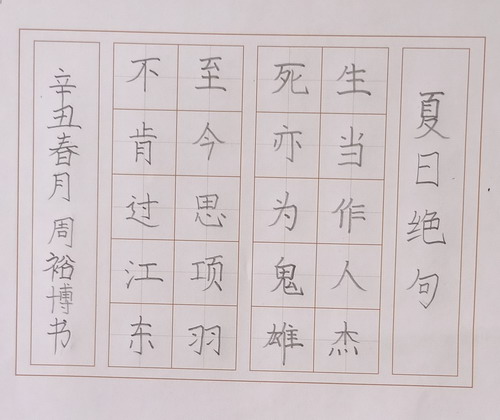 夏日绝句
生当作人杰
死亦为鬼雄
至今思项羽
不肯过江东
辛丑春月周裕博书